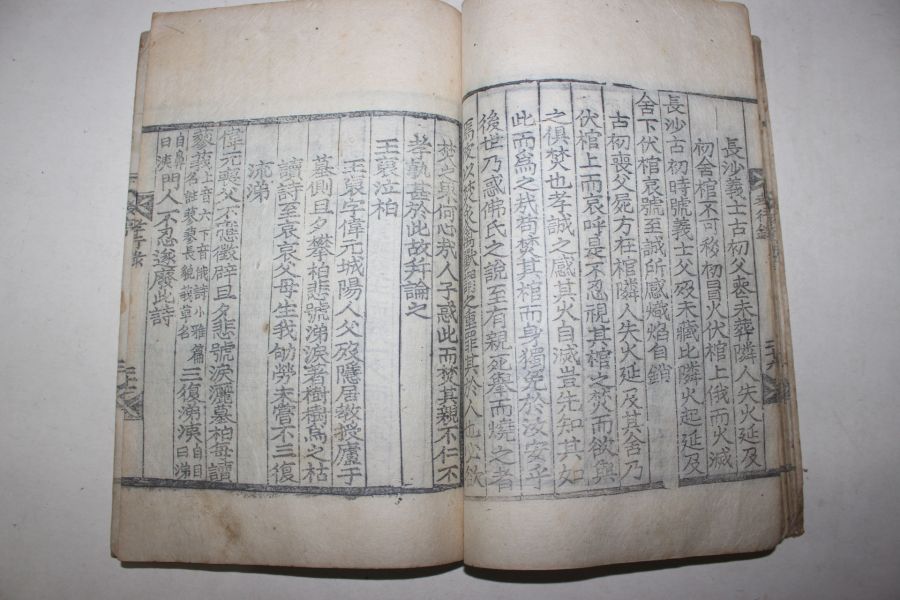 長沙義士古初父喪未葬隣人失火延及
初舍棺不可移初冒火伏棺上俄而火滅
長沙古初時號義士父歿未藏比隣火起延及
舍下伏棺哀號至誠所感熾焰自銷
古初喪父屍方在棺隣人失火延及其舍乃
伏棺上而哀呼是不忍視其棺之焚而欲與
之俱焚也孝誠之感其火自滅豈先知其如
此而爲之哉苟焚其棺而身獨免於汝安乎
後世乃惑佛氏之說至有親死擧而燒之者
焉彼以焚之重罪其於人也公欲
焚此何心哉人子惑此而焚其親不仁不
孝孰甚於此故幷論之
王裒泣柏
王裒字偉元城陽人父歿隱居敎授廬于
墓側旦夕攀柏悲號涕淚著樹樹爲之枯
讀詩至哀哀父母生我劬勞未嘗不三復
流涕
偉元喪父不應徵辟旦夕悲號淚灑墓柏每讀
蓼莪上音六下音俄詩小雅篇名註蓼長貌莪草名三復涕洟自目曰涕
自鼻曰洟門人不忍遂廢此詩
孝行錄